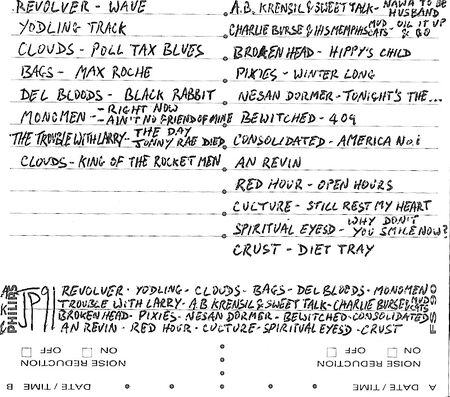 REVOLVER - WAVE
YODLING TRACK
CLOUDS - POLL TAX BLUES
BAGS - MAX ROCHE
DEL BLOODS - BLACK RABBIT
MONOMEN - RIGHT NOW
- AIN'T NO FRIEND OF MINE
THE TROUBLE WITH LARRY - THE DAY JONNY RAE DIED
CLOUDS - KING OF THE ROCKET MEN
A.B. KRENSIL & SWEET TALK - NAWA TO BE HUSBAND
CHARLIE BURSE & HIS MEMPHIS MUD CATS - OIL IT UP & GO
BROKEN HEAD - HIPPY'S CHILD
PIXIES - WINTER LONG
NESAN DORMER - TONIGHT'S THE...
BEWITCHED - 409
CONSOLIDATED - AMERICA No.1
AN REVIN
RED HOUR - OPEN HOURS
CULTURE - STILL REST MY HEART
SPIRITUAL EYESD - WHY DON'T YOU SMILE NOW?
CRUST - DIET TRAY
PHILIPS
JP91
REVOLVER - YODLING - CLOUDS - BAGS - DEL BLOODS - MONOMEN
TROUBLE WITH LARRY - A.B KRENSIL & SWEET TALK - CHARLIE BURSE & MUD CATS
BROKEN HEAD - PIXIES - NESAN DORMER - BEWITCHED - CONSOLIDATED
AN REVIN - RED HOUR - CULTURE - SPIRITUAL EYESD - CRUST
NOISE REDUCTION
ON OFF
NOISE REDUCTION
ON OFF
A DATE / TIME
B DATE / TIME